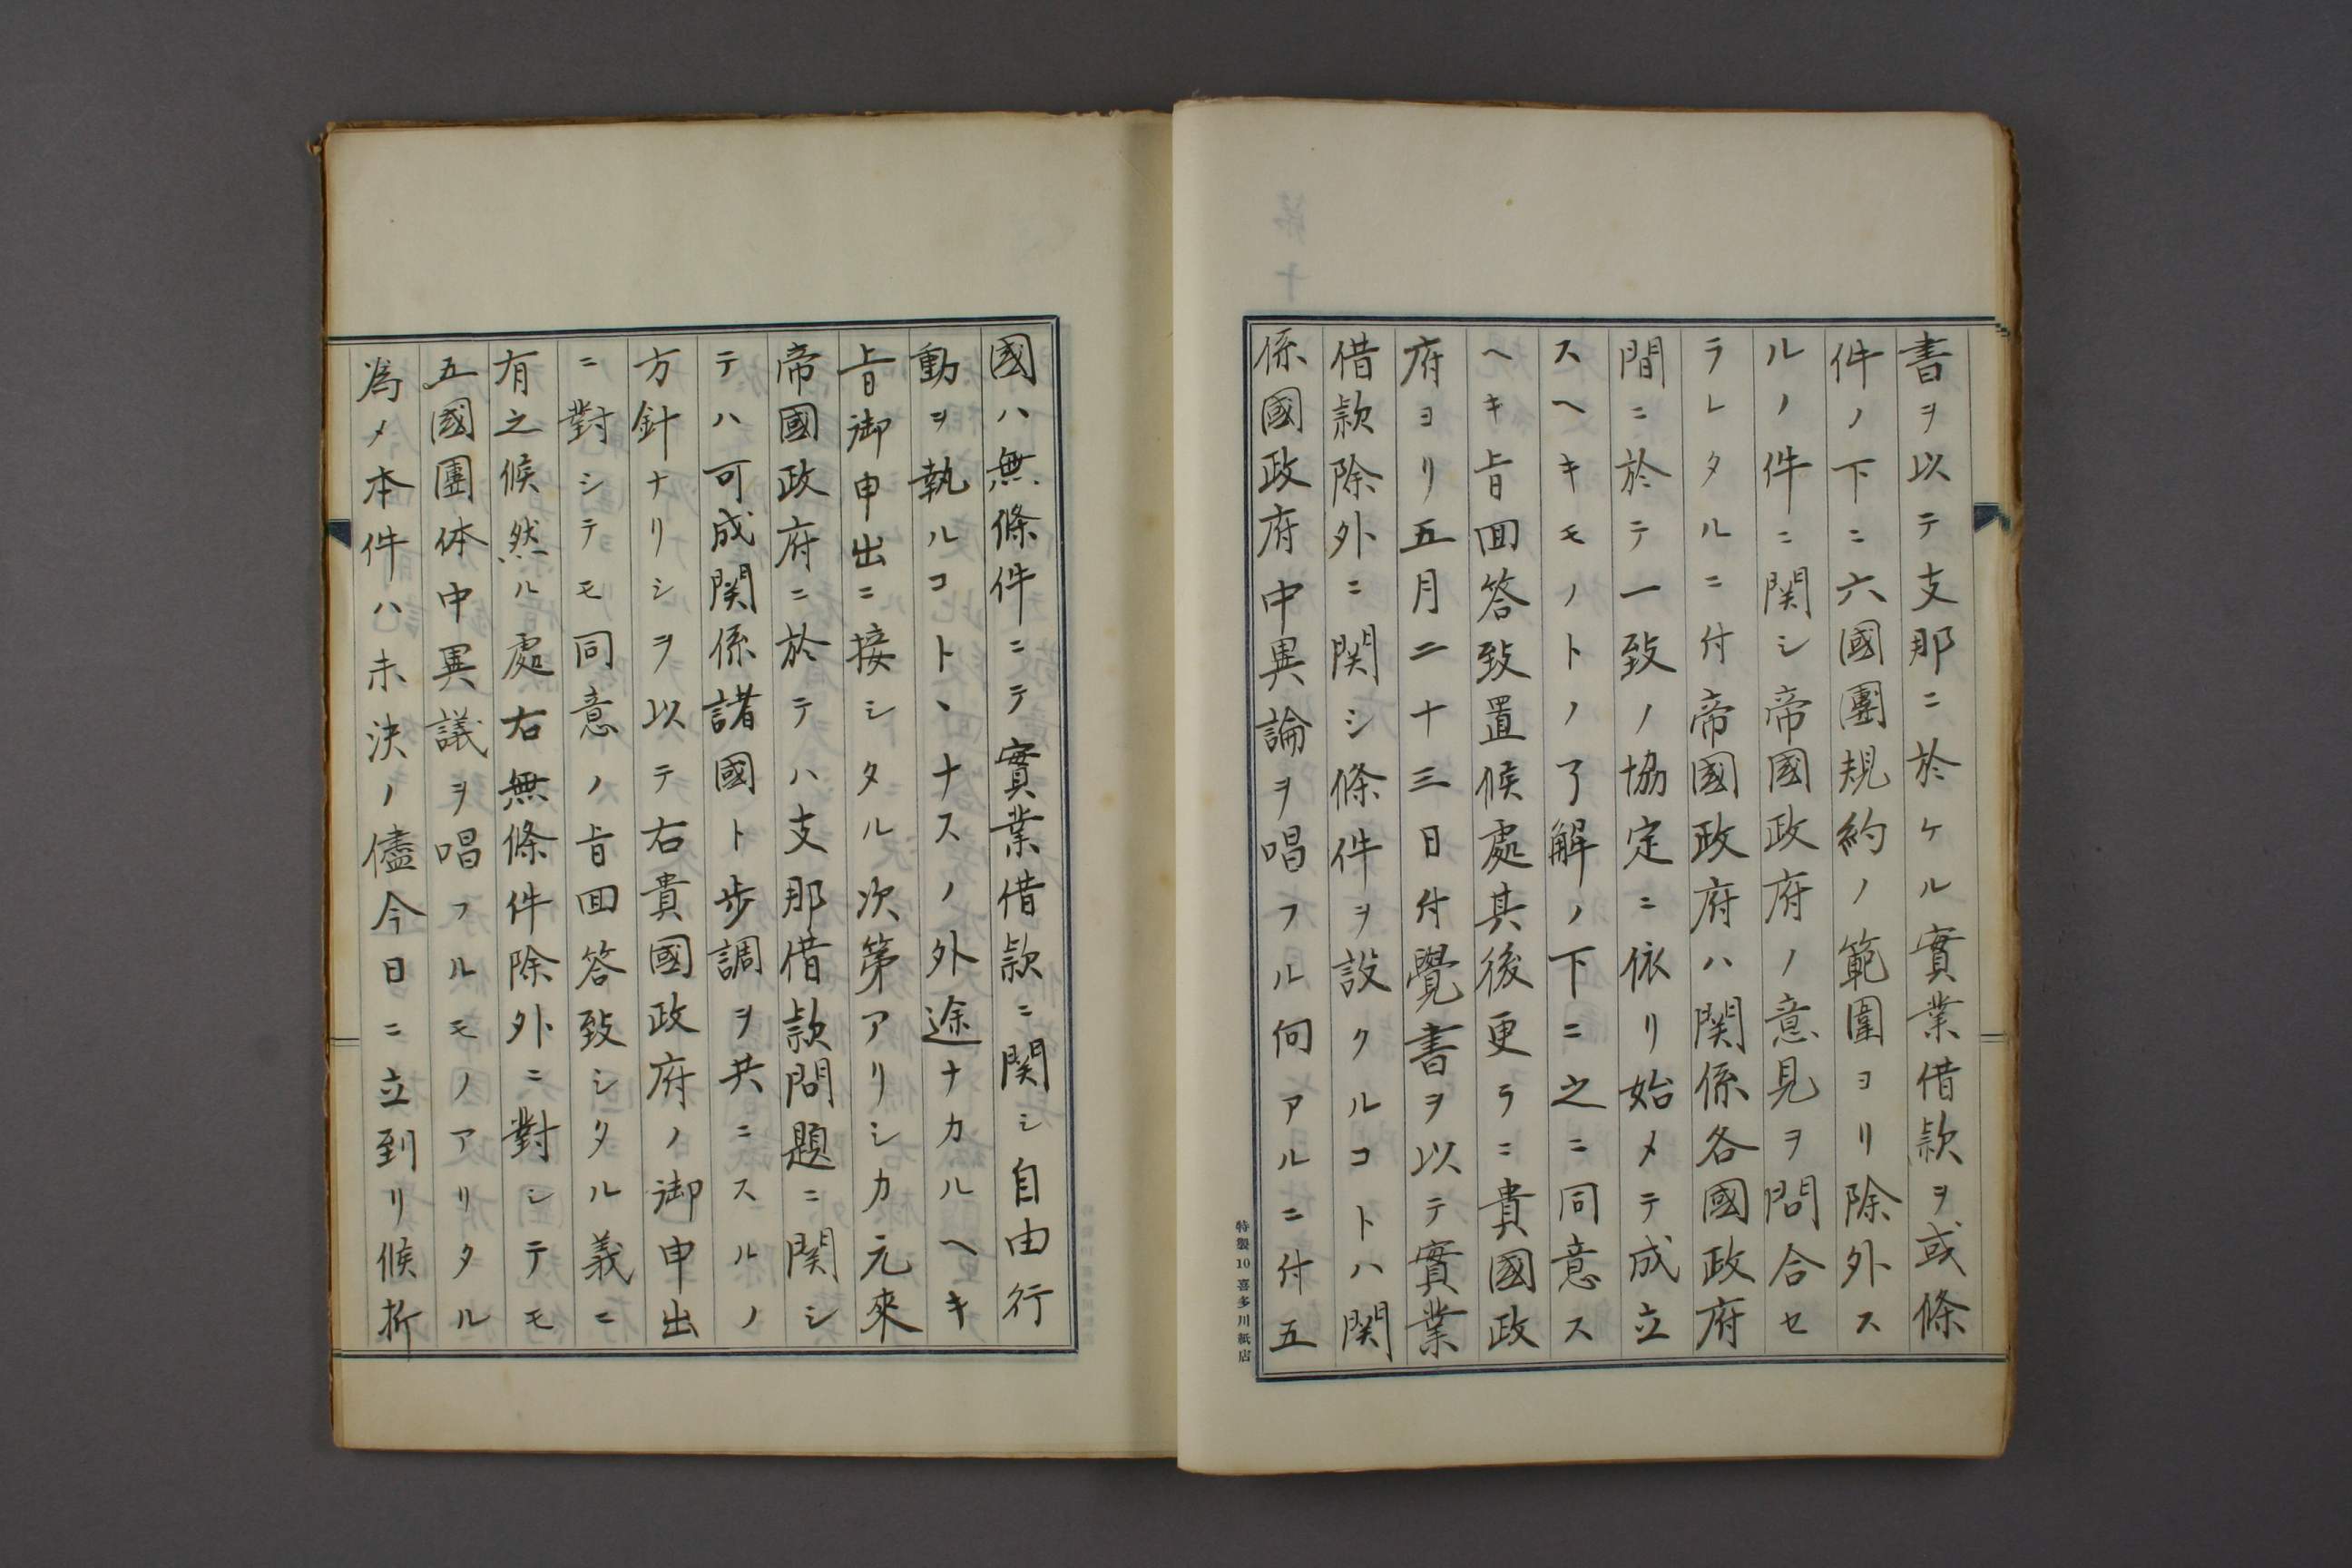 書ヲ以テ支那ニ於ケル實業借款ヲ或條
件ノ下ニ六國團規約ノ範圍ヨリ除外ス
ルノ件ニ関シ帝國政府ノ意見ヲ問合セ
ラレタルニ付帝國政府ハ関係各國政府
間ニ於テ一致ノ協定ニ依リ始メテ成立
スヘキモノトノ了解ノ下ニ之ニ同意ス
ヘキ旨回答致置候處其後更ラニ貴國政
府ヨリ五月二十三日付覺書ヲ以テ實業
借款除外ニ関シ條件ヲ設クルコトハ関
係國政府中異論ヲ唱フル向アルニ付五
特製10喜多川紙店
國ハ無條件ニテ實業借款ニ関シ自由行
動ヲ執ルコトヽナスノ外途ナカルヘキ
旨御申出ニ接シタル次第アリシカ元來
帝國政府ニ於テハ支那借款問題ニ関シ
テハ可成関係諸國ト歩調ヲ共ニスルノ
方針ナリシヲ以テ右貴國政府ノ御申出
ニ對シテモ同意ノ旨回答致シタル義ニ
有之候然ル處右無條件除外ニ對シテモ
五國團体中異議ヲ唱フルモノアリタル
為メ本件ハ未決ノ儘今日ニ立到リ候折